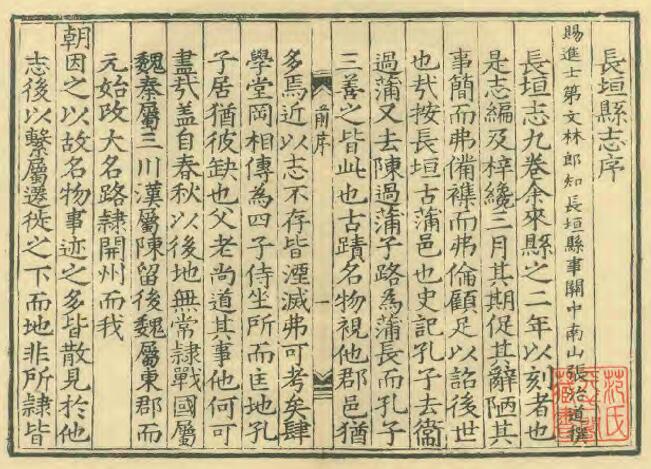 長垣縣志序
賜進士第文林郎知長垣縣事關中南山張治道撰
長垣志九卷余來縣之二年以刻者也
是志編及梓纔三月其期促其辭陋其
事簡而弗備襍而弗倫顧足以詔後世
也哉按長垣古蒲邑也史記孔子去衞
過蒲又去陳過蒲子路為蒲長而孔子
三善之皆此也古蹟名物視他郡邑猶
前序
一
多焉近以志不存皆湮滅弗可考矣肆
學堂岡相傳為四子侍坐所而匡地孔
子居猶彼缺也父老尚道其事他何可
盡哉盖自春秋以後地無常隷戰國屬
魏秦屬三川漢屬陳留後魏屬東郡而
元始改大名路隷開州而我
朝因之以故名物事迹之多皆散見於他
志後以繫屬遷徙之下而地非所隷皆